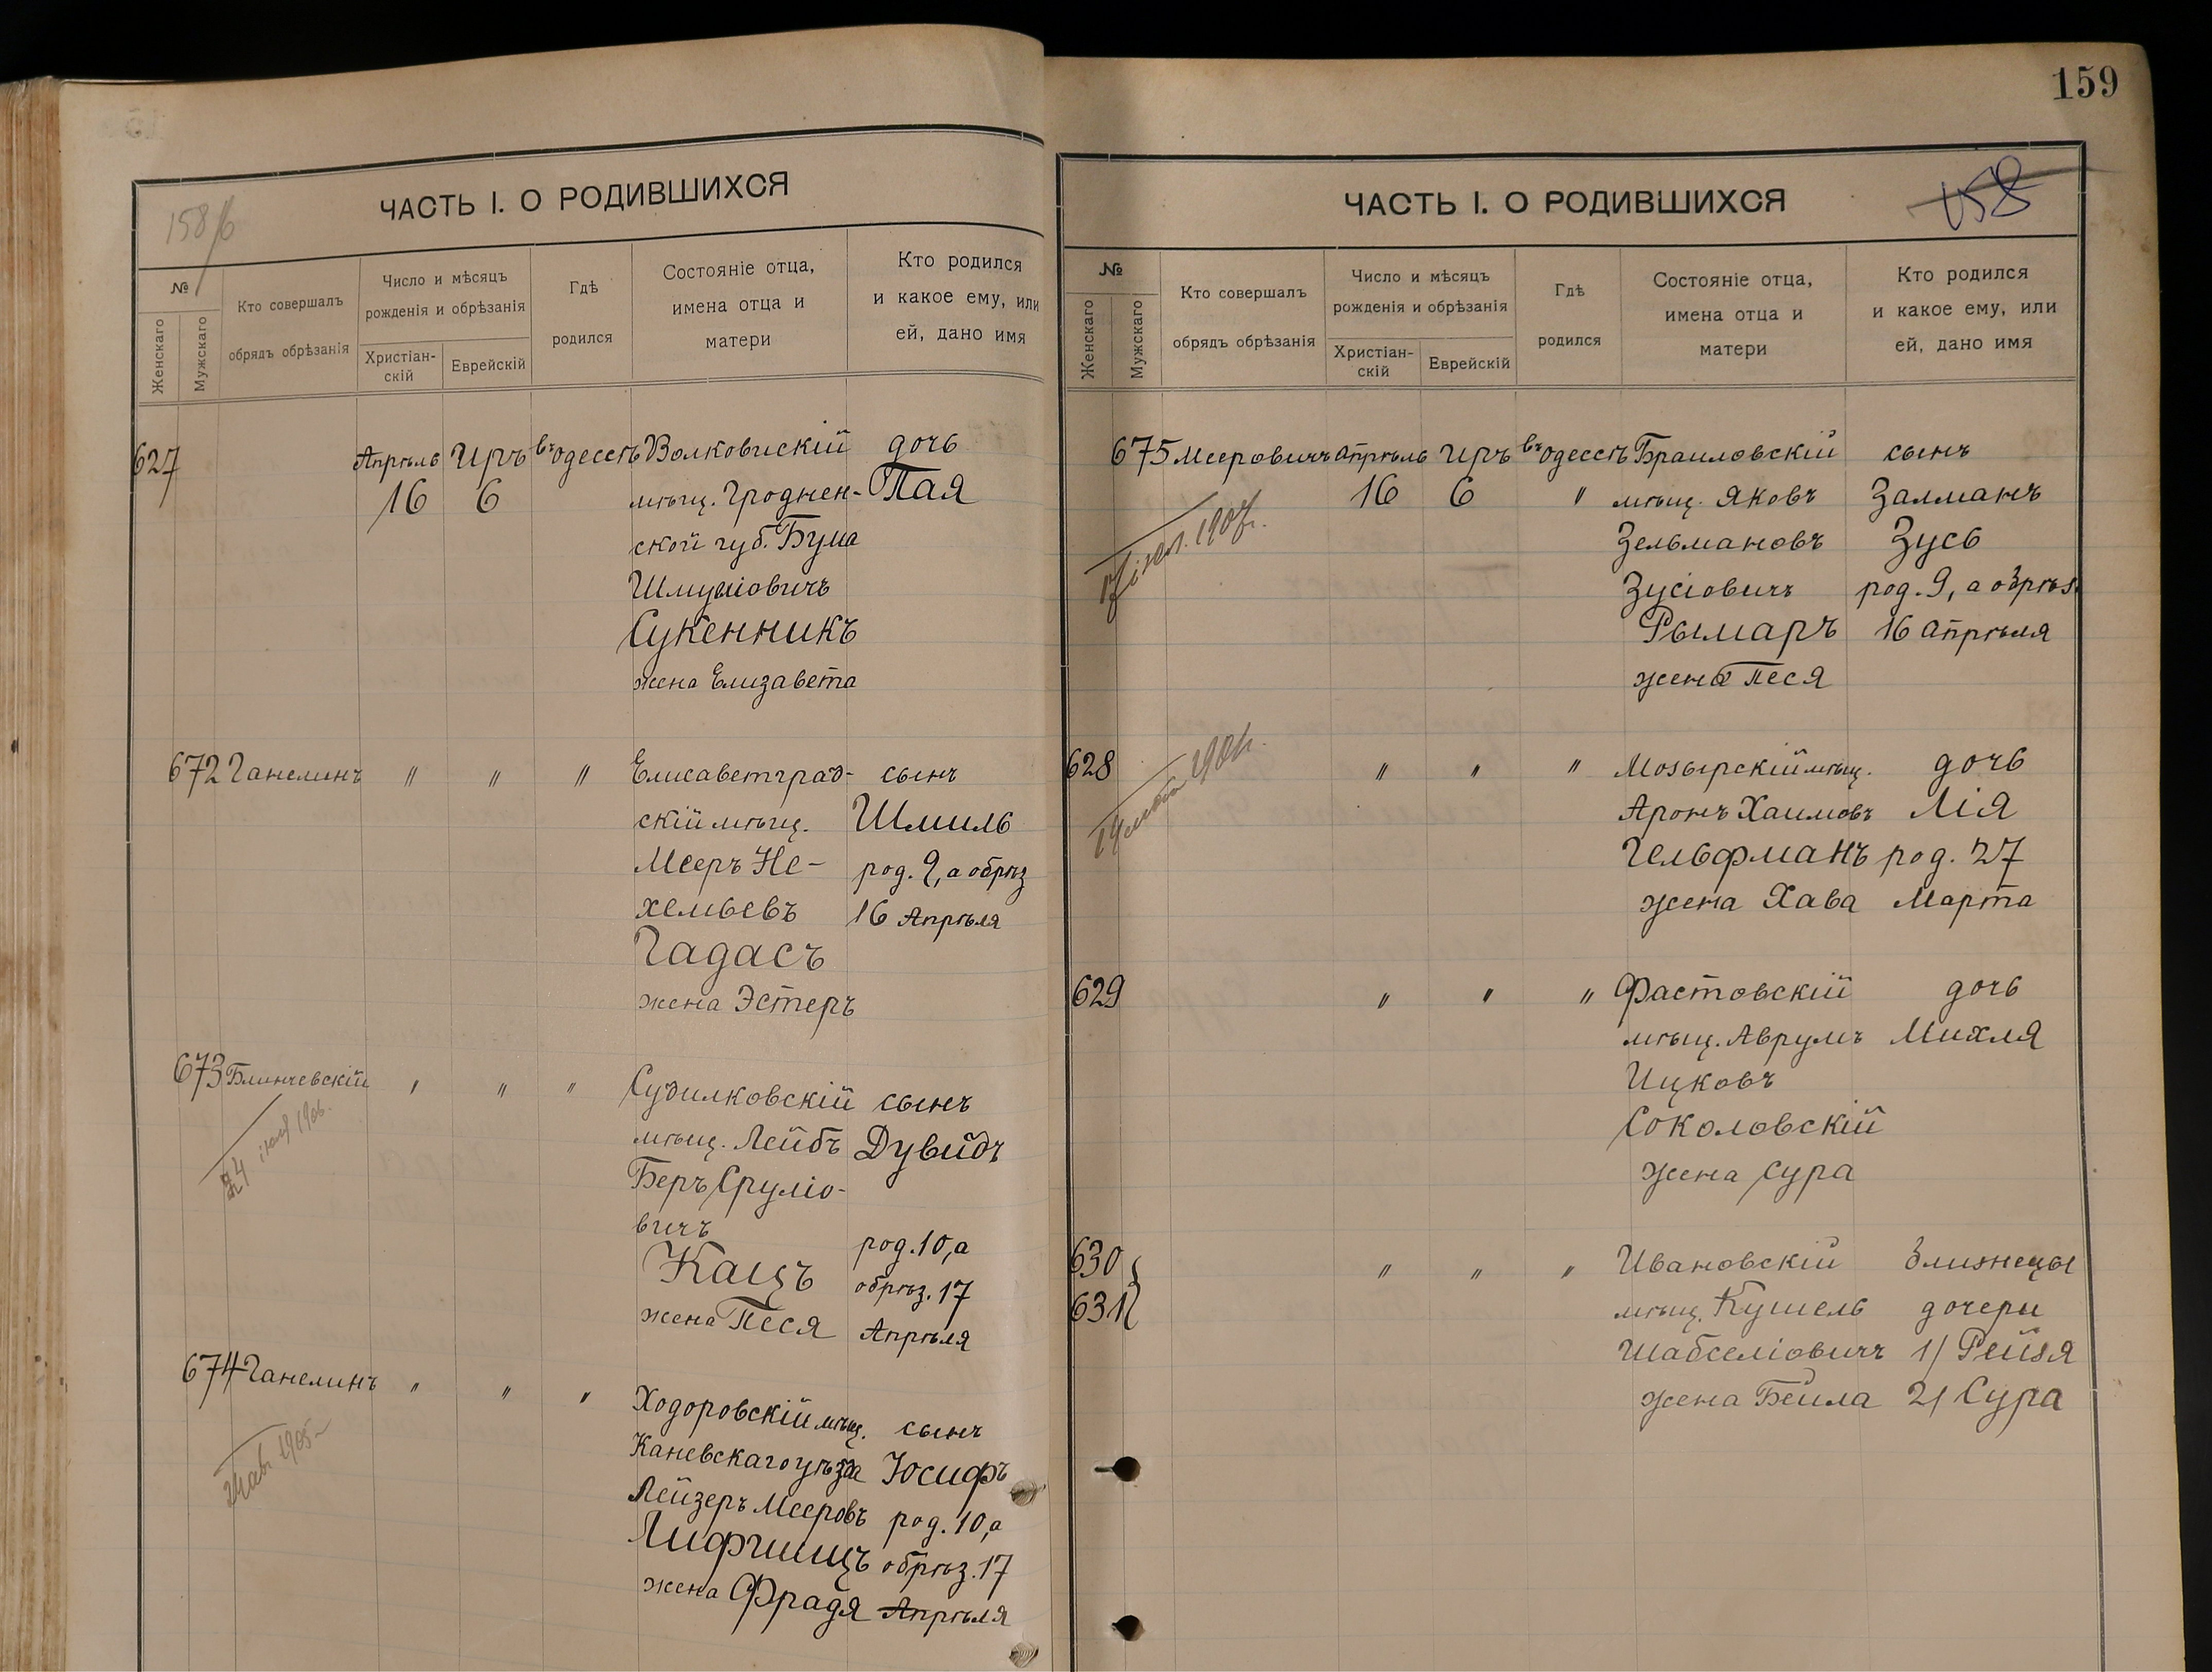 ЧАСТЬ I. О РОДИВШИХСЯ
158/б
№
Женскаго
Мужскаго
Кто совершалъ
обрядъ обрѣзанія
Число и мѣсяцъ
рожденія и обрѣзанія
Христіан-
скій
Еврейскій
Гдѣ
родился
Состояніе отца,
имена отца и
матери
Кто родился
и какое ему, или
ей, дано имя
627 Апрѣль Иръ въ Одессѣ Волковискій дочь
16 6 мѣщ. Гроднен- Пая
ской губ. Бума
Шмуліовичъ
Сукенникъ
жена Елизавета
672 Ганелинъ " " " Елисаветград- сынъ
скій мѣщ. Шмиль
Мееръ Не- род. 9, а обрѣз
хемьевъ 16 Апрѣля
Гадасъ
жена Эстеръ
673 Блинчевскій " " " Судилковскій сынъ
24 іюля 1906.
мѣщ. Лейбъ Дувидъ
Беръ Сруліо-
вичъ род. 10, а
Кацъ обрѣз. 17
жена Песя Апрѣля
674 Ганелинъ " " " Ходоровскій мѣщ. сынъ
Каневскаго уѣзда Юсифъ
Лейзеръ Мееровъ род. 10, а
Лифшицъ обрѣз. 17
жена Фрадя Апрѣля
159
ЧАСТЬ I. О РОДИВШИХСЯ
158
№
Женскаго
Мужскаго
Кто совершалъ
обрядъ обрѣзанія
Число и мѣсяцъ
рожденія и обрѣзанія
Христіан-
скій
Еврейскій
Гдѣ
родился
Состояніе отца,
имена отца и
матери
Кто родился
и какое ему, или
ей, дано имя
675 Мееровичъ Апрѣль Иръ въ Одессѣ Браиловскій сынъ
16 6 " мѣщ. Яковъ Залманъ
Зельмановъ Зусь
Зусіовичъ род. 9, а обрѣз.
Рымаръ 16 Апрѣля
жена Песя
628 " " " Мозырскій мѣщ. дочь
Аронъ Хаимовъ Лія
Гельфманъ род. 27
жена Хава Марта
629 " " " Фастовскій дочь
мѣщ. Аврумъ Михля
Ицковъ
Соколовскій
жена Сура
630 " " " Ивановскій близнецы
631 мѣщ. Кушель дочери
Шабселіовичъ 1/ Рейзя
жена Бейла 2/ Сура